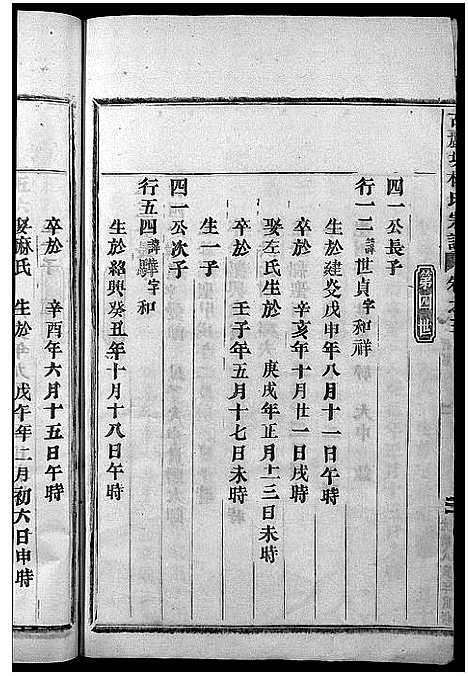 第四世
四一公長子
行一二諱世貞字和祥
生於建炎戊申年八月十一日午時
卒於 辛亥年十月廿一日戌時
娶左氏生於 庚戌年正月十三日未時
卒於 壬子年五月十七日未時
生一子
四一公次子
行五四諱驊字和
生於紹興癸丑年十月十八日午時
卒於 辛酉年六月十五日午時
娶麻氏 生於 戊午年二月初六日申時